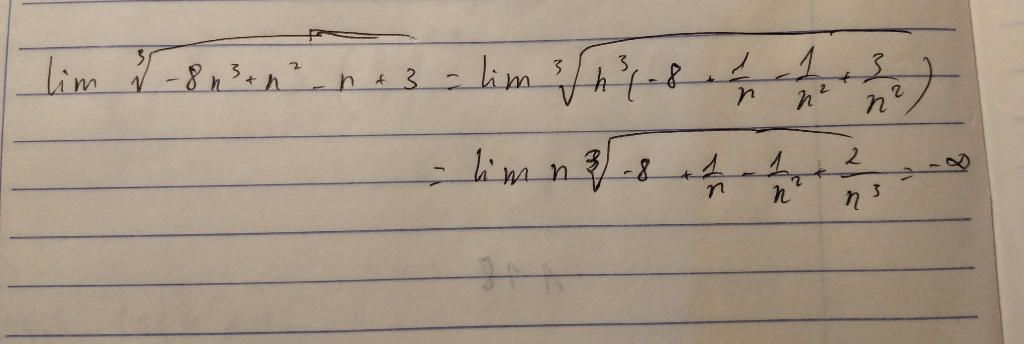 lim ∛(-8n³ + n² - n + 3) = lim ∛(n³(-8 + 1/n - 1/n² + 3/n²))
= lim n ∛(-8 + 1/n - 1/n² + 2/n³) = -∞